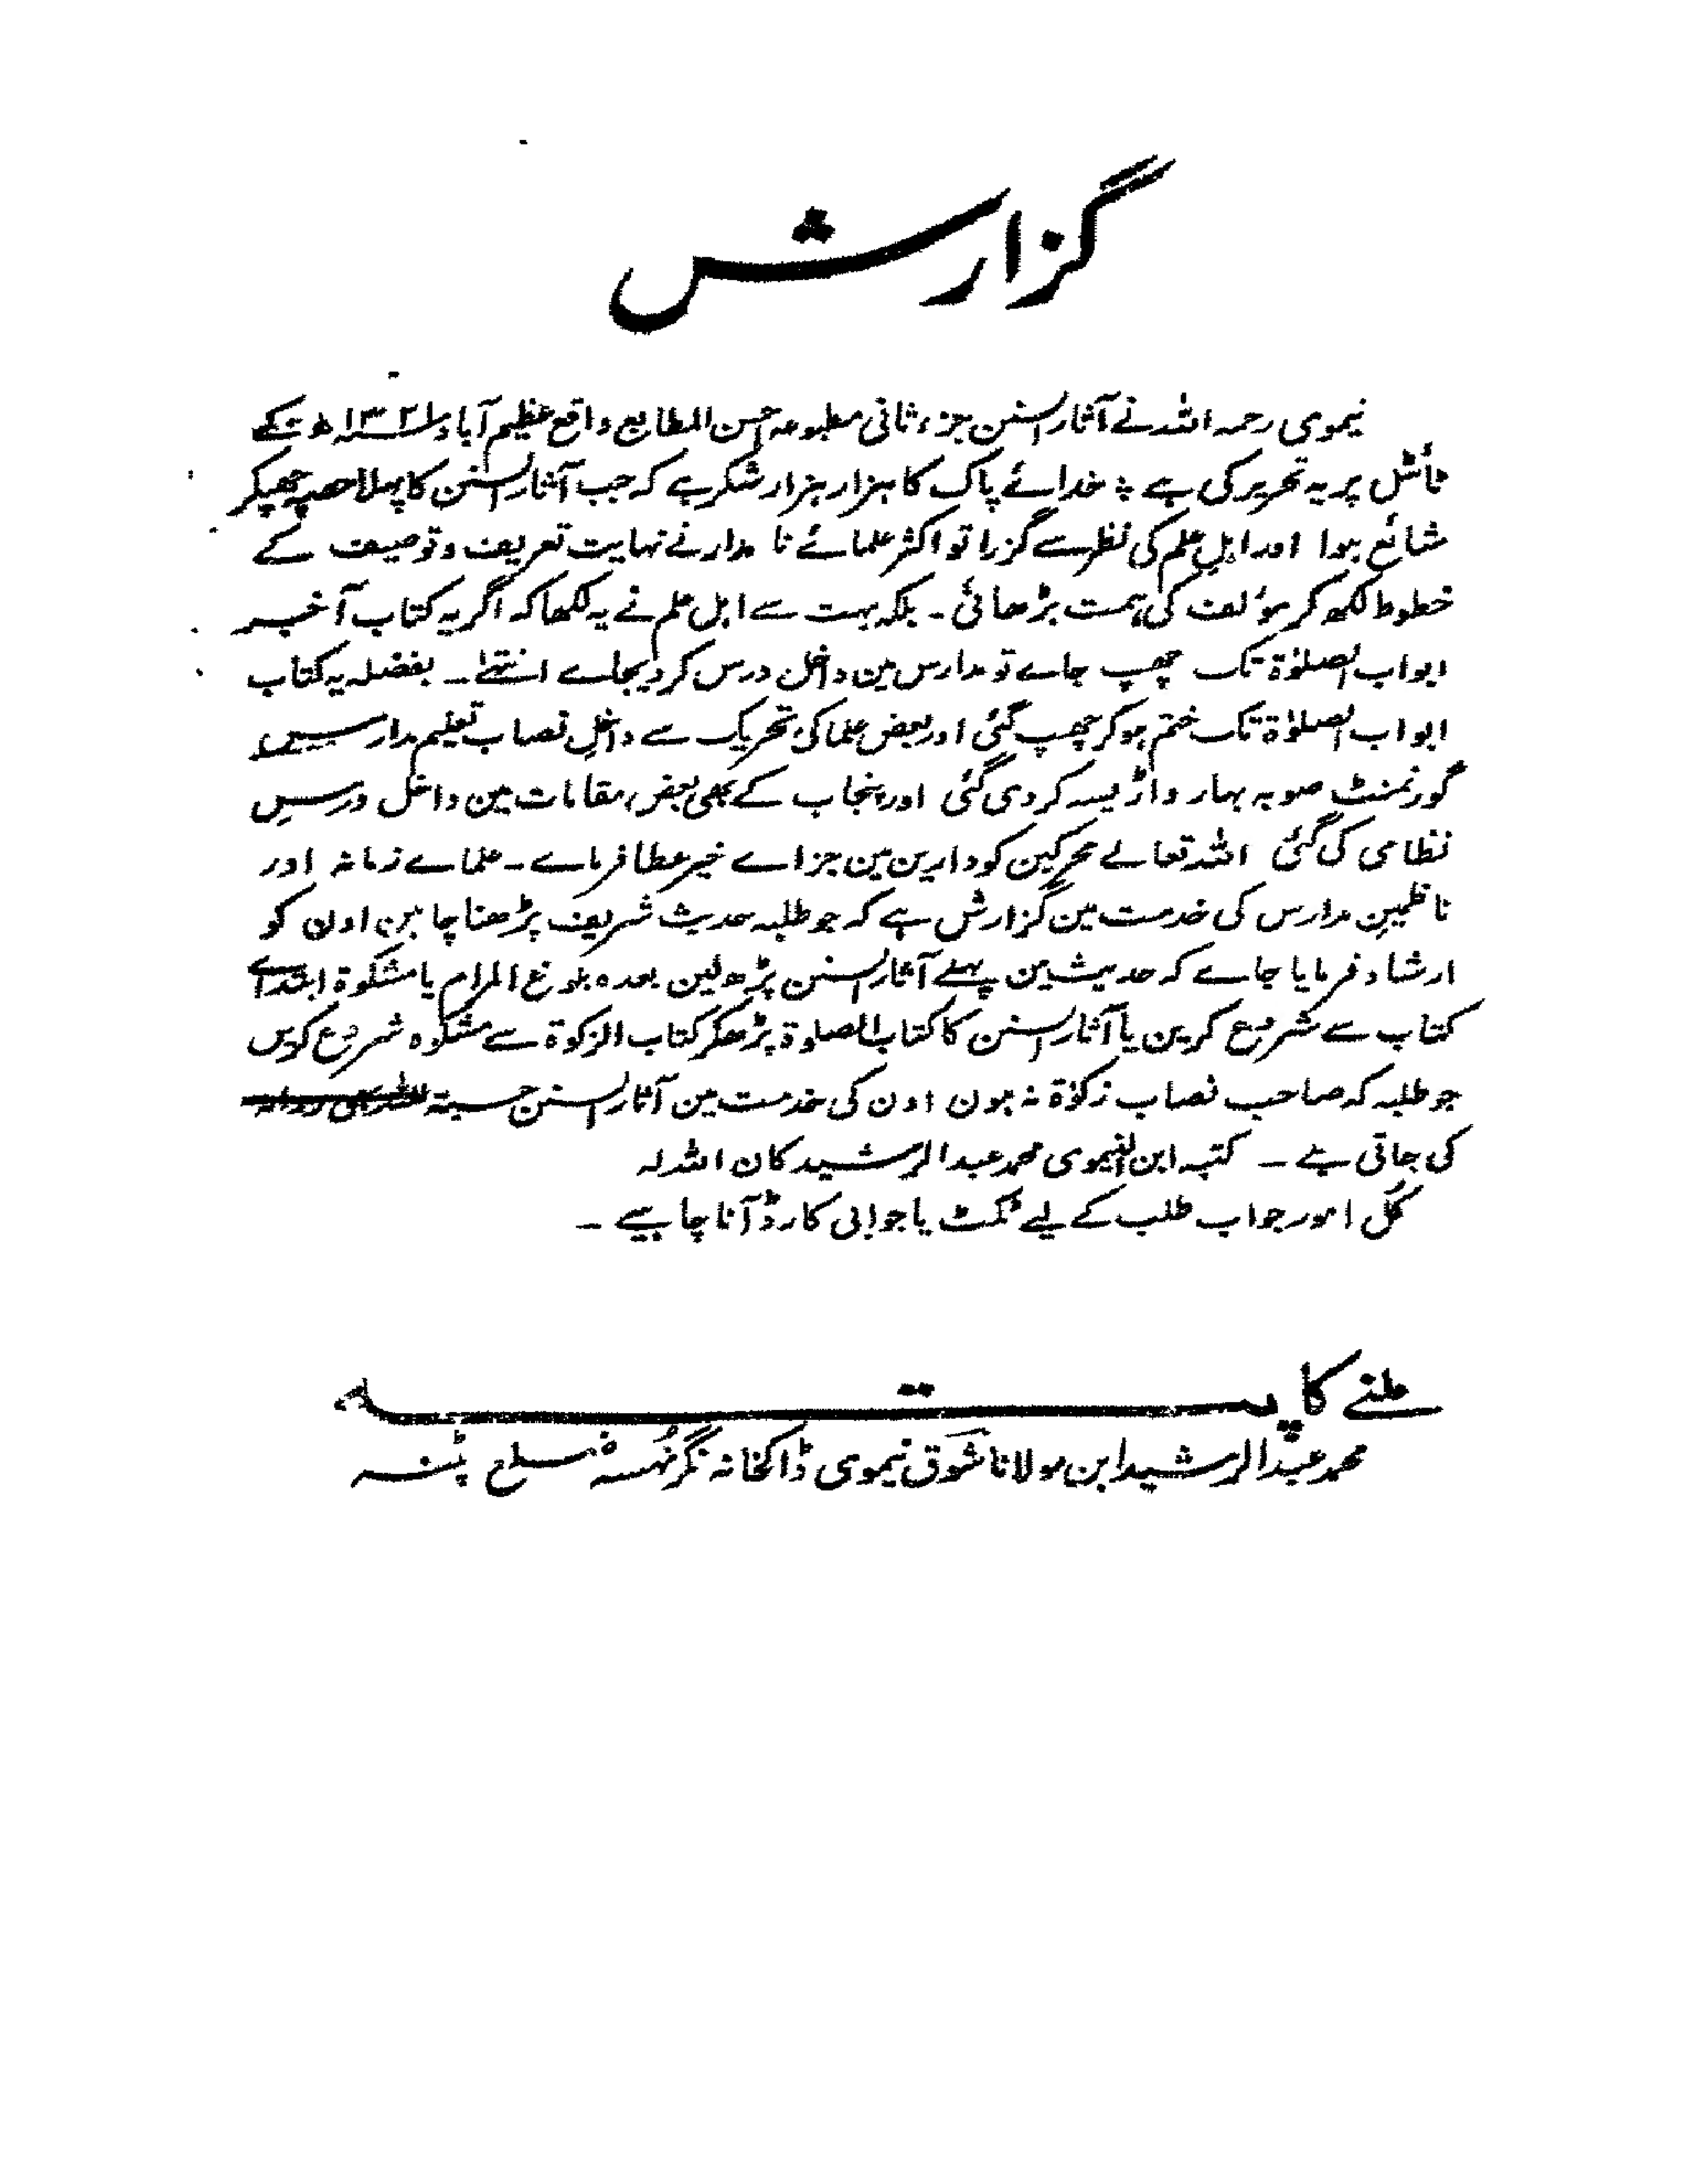 گزارش
نیموی رحمہ اللہ نے آثار السنن جزء ثانی مطبوعہ احسن المطابع واقع عظیم آباد ۱۳۲۱ھ کے
ٹائٹل پر یہ تحریر کی ہے ؛ خدائے پاک کا ہزار ہزار شکر ہے کہ جب آثار السنن کا پہلا حصہ چھپکر
شائع ہوا اور اہلِ علم کی نظر سے گزرا تو اکثر علمائے نامدار نے نہایت تعریف و توصیف کے
خطوط لکھ کر مؤلف کی ہمت بڑھائی ۔ بلکہ بہت سے اہل علم نے یہ لکھا کہ اگر یہ کتاب آخیر
ابواب الصلوٰۃ تک چھپ جاے تو مدارس مین داخل درس کردیجاے انتہٰی ۔ بفضلہ یہ کتاب
ابواب الصلوٰۃ تک ختم ہوکر چھپ گئی اور بعض علما کی تحریک سے داخلِ نصاب تعلیم مدارس
گورنمنٹ صوبہ بہار واڑیسہ کردی گئی اور پنجاب کے بھی بعض مقامات مین داخل درسِ
نظامی کی گئی اللہ تعالے محرکین کو دارین مین جزاے خیر عطا فرماے ۔ علماے زمانہ اور
ناظمینِ مدارس کی خدمت مین گزارش ہے کہ جو طلبہ حدیث شریف پڑھنا چاہین اون کو
ارشاد فرمایا جاے کہ حدیث مین پہلے آثار السنن پڑھ لین بعدہ بلوغ المرام یا مشکوۃ ابتداے
کتاب سے شروع کرین یا آثار السنن کا کتاب الصلوۃ پڑھکر کتاب الزکوۃ سے مشکوہ شروع کریں
جو طلبہ کہ صاحب نصاب زکوٰۃ نہ ہون اون کی خدمت مین آثار السنن حسبۃ للہ روانہ
کی جاتی ہے ۔ کتبہ ابن النیموی محمد عبد الرشید کان اللہ لہ
کُل امور جواب طلب کے لیے ٹکٹ یا جوابی کارڈ آنا چاہیے ۔
ملنے کا پتہ
محمد عبد الرشید ابن مولانا شوق نیموی ڈاکخانہ نگرنہسہ ضلع پٹنہ